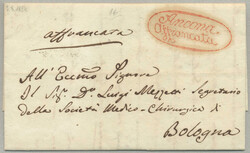 affrancata
Ancona
Affrancata
All' Eccmo Signore
Il Sigr. Dr. Luigi Mezzetti Segretario
della Società Medico-Chirurgica di
Bologna